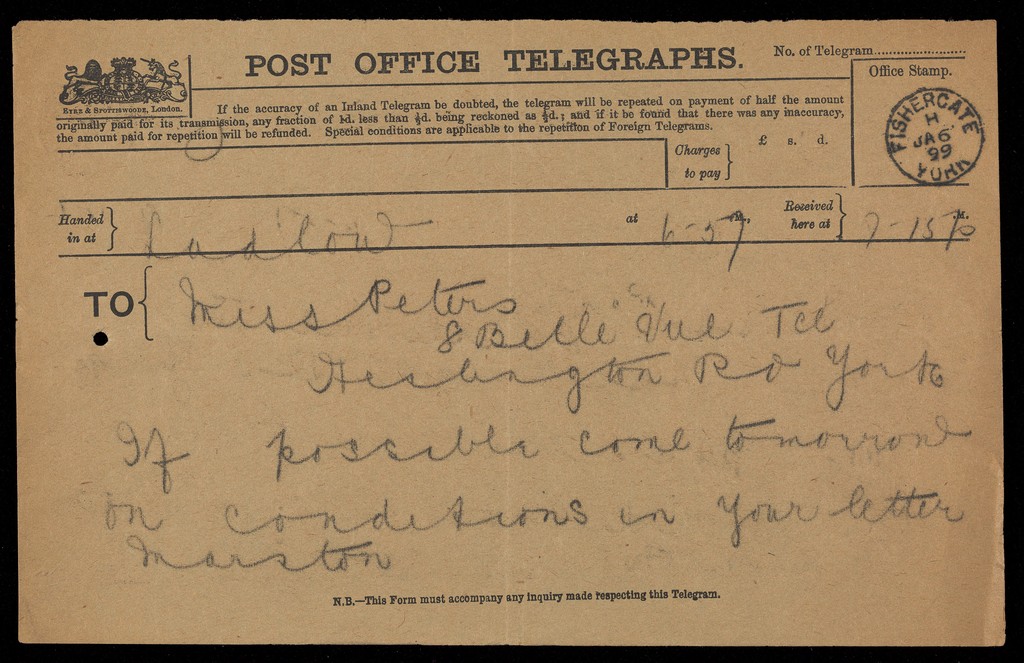 POST OFFICE TELEGRAPHS.
No. of Telegram
EYRE & SPOTTISWOODE, LONDON.
Office Stamp.
If the accuracy of an Inland Telegram be doubted, the telegram will be repeated on payment of half the amount
originally paid for its transmission, any fraction of 1d. less than ½d. being reckoned as ½d.; and if it be found that there was any inaccuracy,
the amount paid for repetition will be refunded. Special conditions are applicable to the repetition of Foreign Telegrams.
FISHERGATE
H
JA 6
99
YORK
Charges to pay
£ s. d.
Handed in at
Ludlow
at
6-57
M.,
Received here at
7-15 p
.M.
TO
Miss Peters
8 Belle Vue Tce
Heslington Rd York
If possible come tomorrow
on conditions in your letter
Marston
N.B.—This Form must accompany any inquiry made respecting this Telegram.